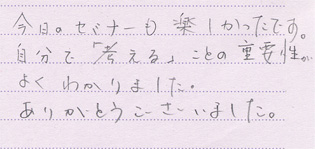 今日のセミナーも楽しかったです。
自分で「考える」ことの重要性が
よくわかりました。
ありがとうございました。